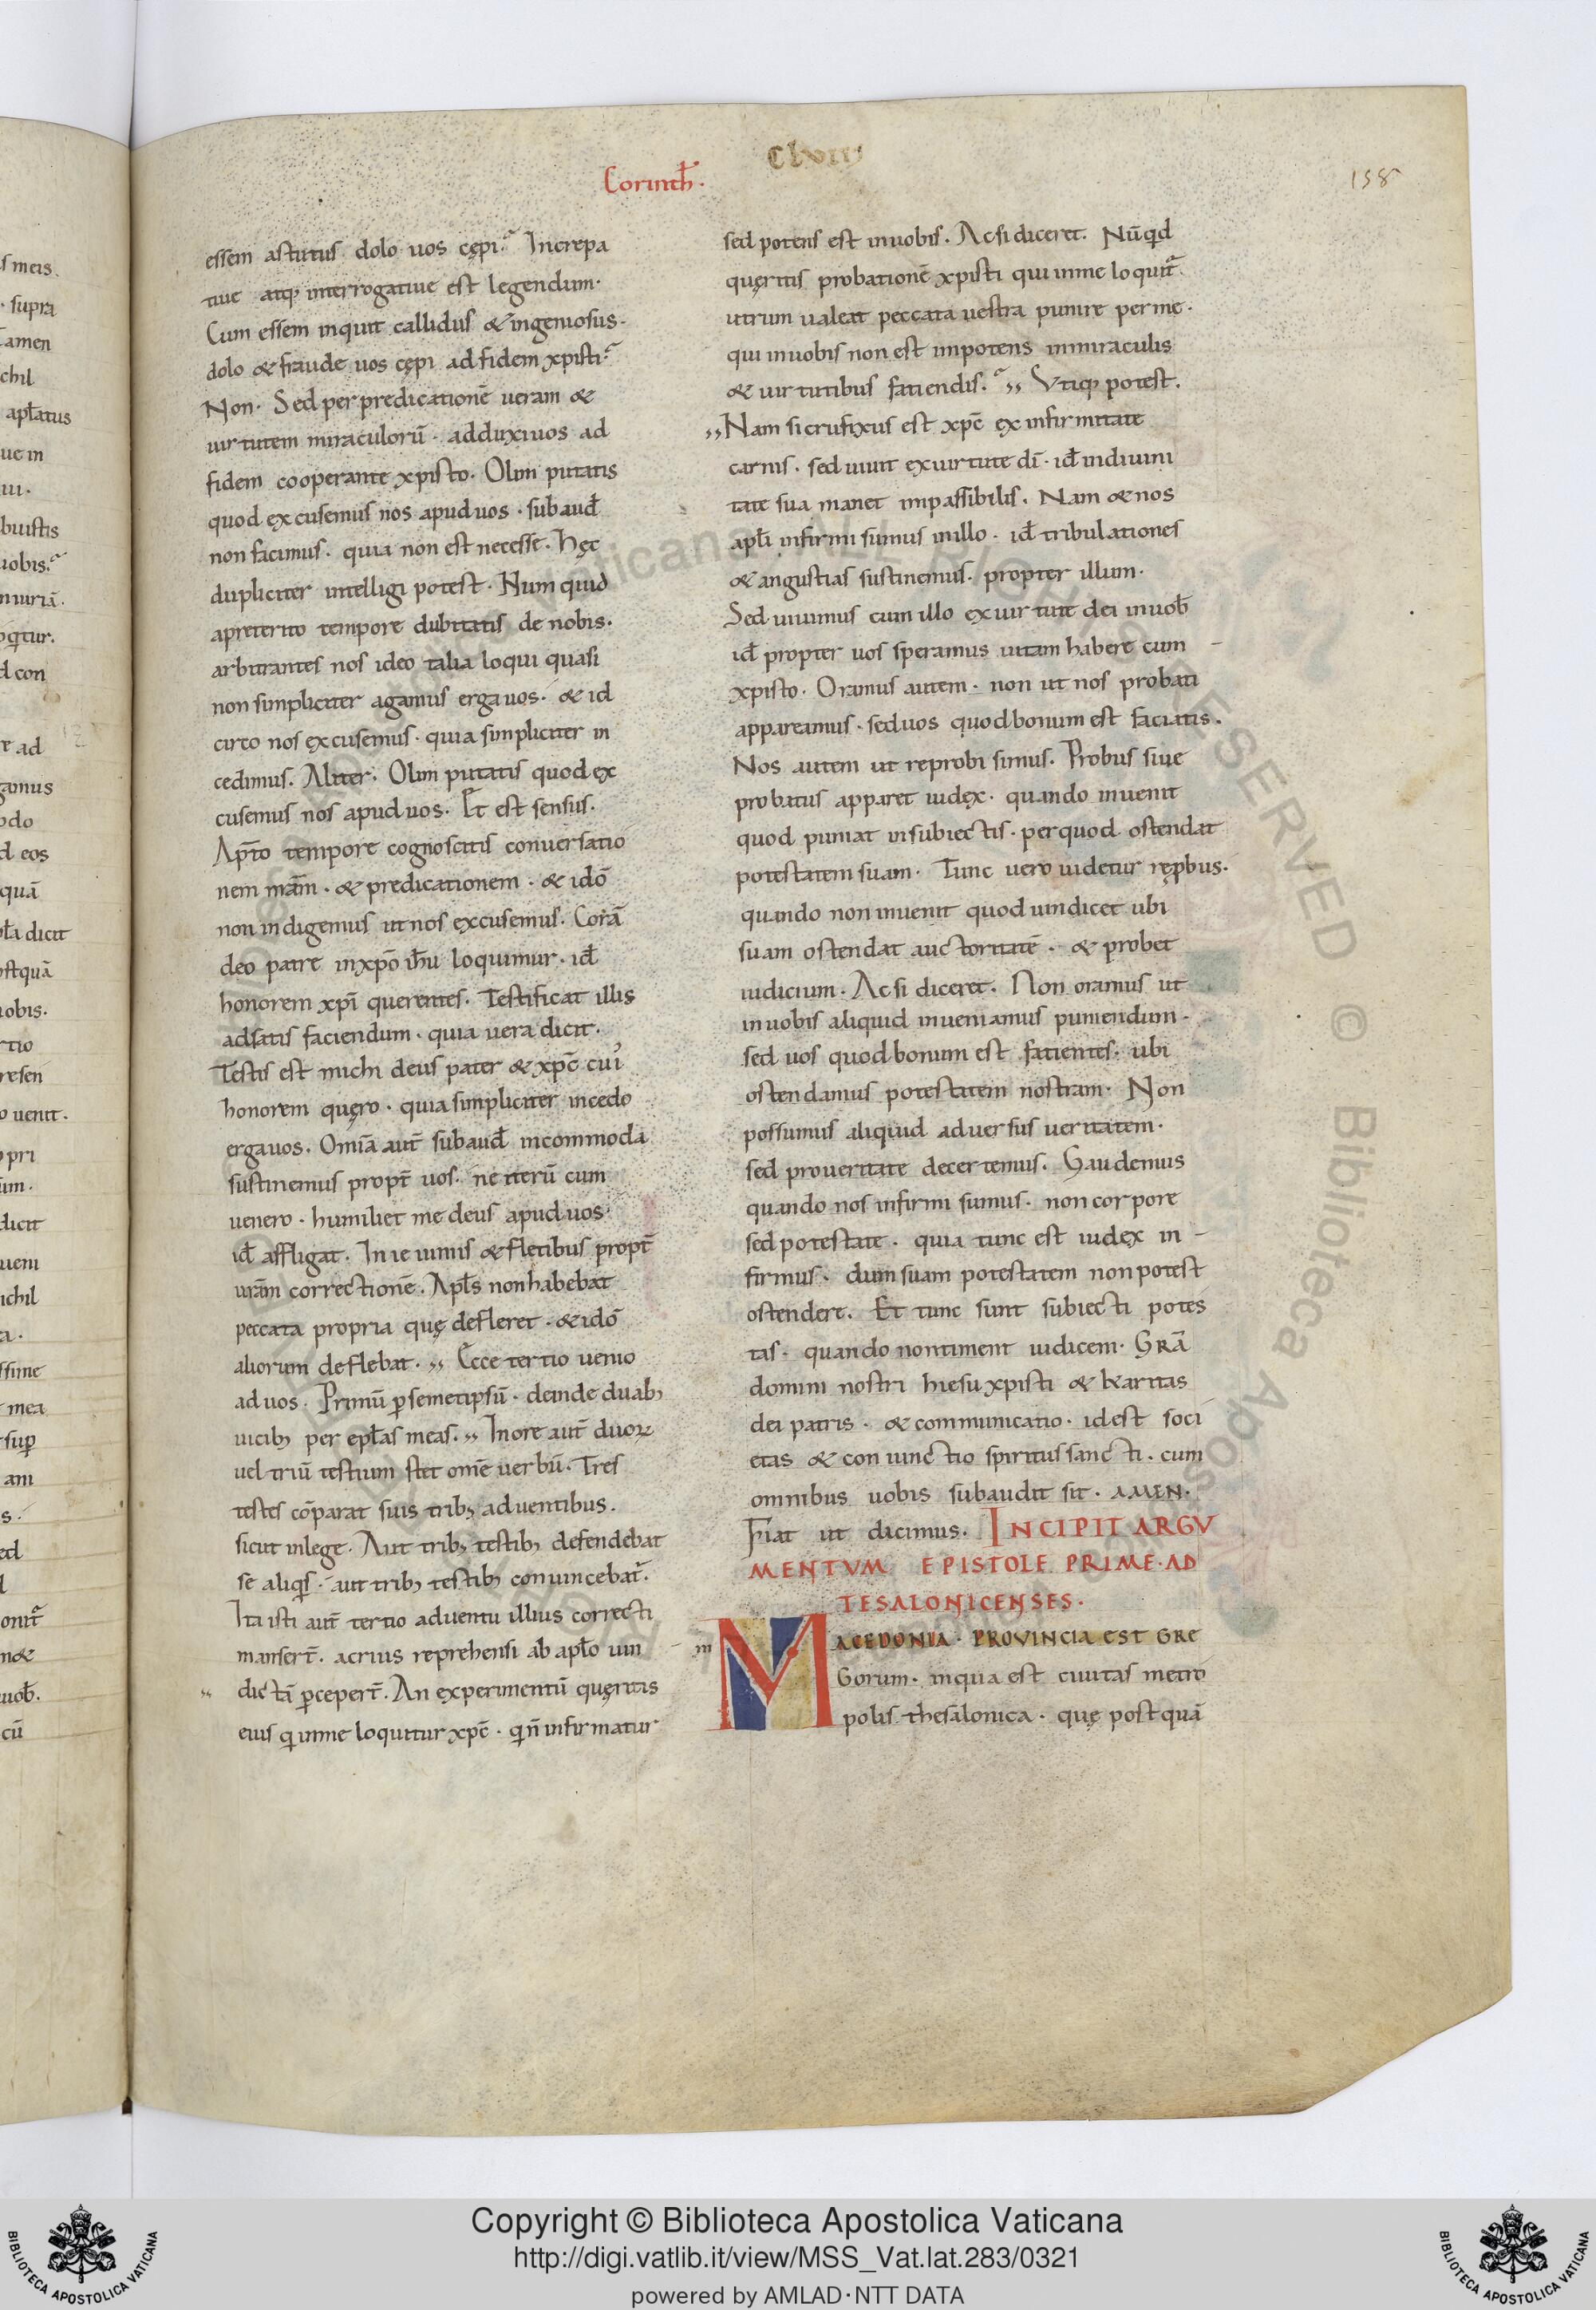 Corinth̄.
clviii
158
essem astutus dolo uos cępi. Increpa
tiue atq; interrogatiue est legendum.
Cum essem inquit callidus & ingeniosus.
dolo & fraude uos cępi ad fidem xpisti.
Non. Sed per predicationē ueram &
uirtutem miraculorū. adduxi uos ad
fidem cooperante xpisto. Olim putatis
quod excusemus nos apud uos. subaud̄
non facimus. quia non est necesse. Hęc
dupliciter intelligi potest. Num quid
apreterito tempore dubitatis de nobis.
arbitrantes nos ideo talia loqui quasi
non simpliciter agamus erga uos. & id
circo nos excusemus. quia simpliciter in
cedimus. Aliter. Olim putatis quod ex
cusemus nos apud uos. Et est sensus.
Ap̄to tempore cognoscitis conuersatio
nem nrām. & predicationem. & idō
non indigemus ut nos excusemus. Corā
deo patre in xp̄o ih̄u loquimur. id̄
honorem xp̄i querentes. Testificat illis
adsatis faciendum. quia uera dicit.
Testis est michi deus pater & xp̄c cui᾽
honorem quęro. quia simpliciter incedo
erga uos. Omīa aut̄ subaud̄ incommoda
sustinemus propt̄ uos. ne iterū cum
uenero. humiliet me deus apud uos.
id̄ affligat. In ieiuniis & fletibus propt̄
urām correctionē. Apl̄s non habebat
peccata propria quę defleret. & idō
aliorum deflebat. ,, Ecce tertio uenio
ad uos. Primū p̱ semetipsū. deinde duab;
uicib; per epl̄as meas. ,, In ore aut̄ duoꝝ
uel triū testium stet om̄e uerbū. Tres
testes cōparat suis trib; aduentibus.
sicut in lege. Aut trib; testib; defendebat
se aliqs̄. aut trib; testib; conuincebat̄.
Ita isti aut̄ tertio aduentu illius correcti
manser̄t. acrius reprehensi ab apl̄o uin
dictā p̱ceper̄t. An experimentū quęritis
eius qui in me loquitur xp̄c. qī n̄ infirmatur
sed potens est in uobis. Ac si diceret. Nūqid
quęritis probationē xpisti qui in me loquit̄.
utrum ualeat peccata uestra punire per me.
qui in uobis non est impotens in miraculis
& uirtutibus fatiendis. ,, Vtiq; potest.
,, Nam si crufixus est xp̄c ex infirmitate
carnis. sed uiuit ex uirtute dī. id̄ in diuini
tate sua manet impassibilis. Nam & nos
apl̄i infirmi sumus in illo. id̄ tribulationes
& angustias sustinemus. propter illum.
Sed uiuimus cum illo ex uirtute dei in uob̄
id̄ propter uos speramus uitam habere cum
xpisto. Oramus autem. non ut nos probati
appareamus. sed uos quod bonum est faciatis.
Nos autem ut reprobi simus. Probus siue
probatus apparet iudęx. quando inuenit
quod puniat in subiectis. per quod ostendat
potestatem suam. Tunc uero uidetur rępbus.
quando non inuenit quod uindicet ubi
suam ostendat auctoritatē. & probet
iudicium. Ac si diceret. Non oramus ut
in uobis aliquid inueniamus puniendum.
sed uos quod bonum est fatientes. ubi
ostendamus potestatem nostram. Non
possumus aliquid aduersus ueritatem.
sed pro ueritate decertemus. Gaudemus
quando nos infirmi sumus. non corpore
sed potestate. quia tunc est iudęx in
firmus. dum suam potestatem non potest
ostendere. Et tunc sunt subiecti potes
tas. quando non timent iudicem. Grā
domini nostri hiesu xpisti & karitas
dei patris. & communicatio. id est soci
etas & coniunctio spiritus sancti. cum
omnibus uobis subaudit sit. AMEN.
Fiat ut dicimus. INCIPIT ARGV
MENTVM EPISTOLE PRIME. AD
TESALONICENSES.
m MACEDONIA. PROVINCIA EST GRE
Gorum. in qua est ciuitas metro
polis thesalonica. quę postquā
s meis.
. supra
tamen
chil
apl̄atus
ue in
buistis
uobis.
niuriā.
d con
re ad
gamus
odo
d eos
quā
dicit
ostquā
uobis.
rtio
resen
o uenit.
pri
um.
dicit
ueni
ichil
ssime
mea
sup̱
am
onit̄
uob̄.
cū
Copyright © Biblioteca Apostolica Vaticana
http://digi.vatlib.it/view/MSS_Vat.lat.283/0321
powered by AMLAD·NTT DATA
BIBLIOTECA APOSTOLICA VATICANA
BIBLIOTECA APOSTOLICA VATICANA